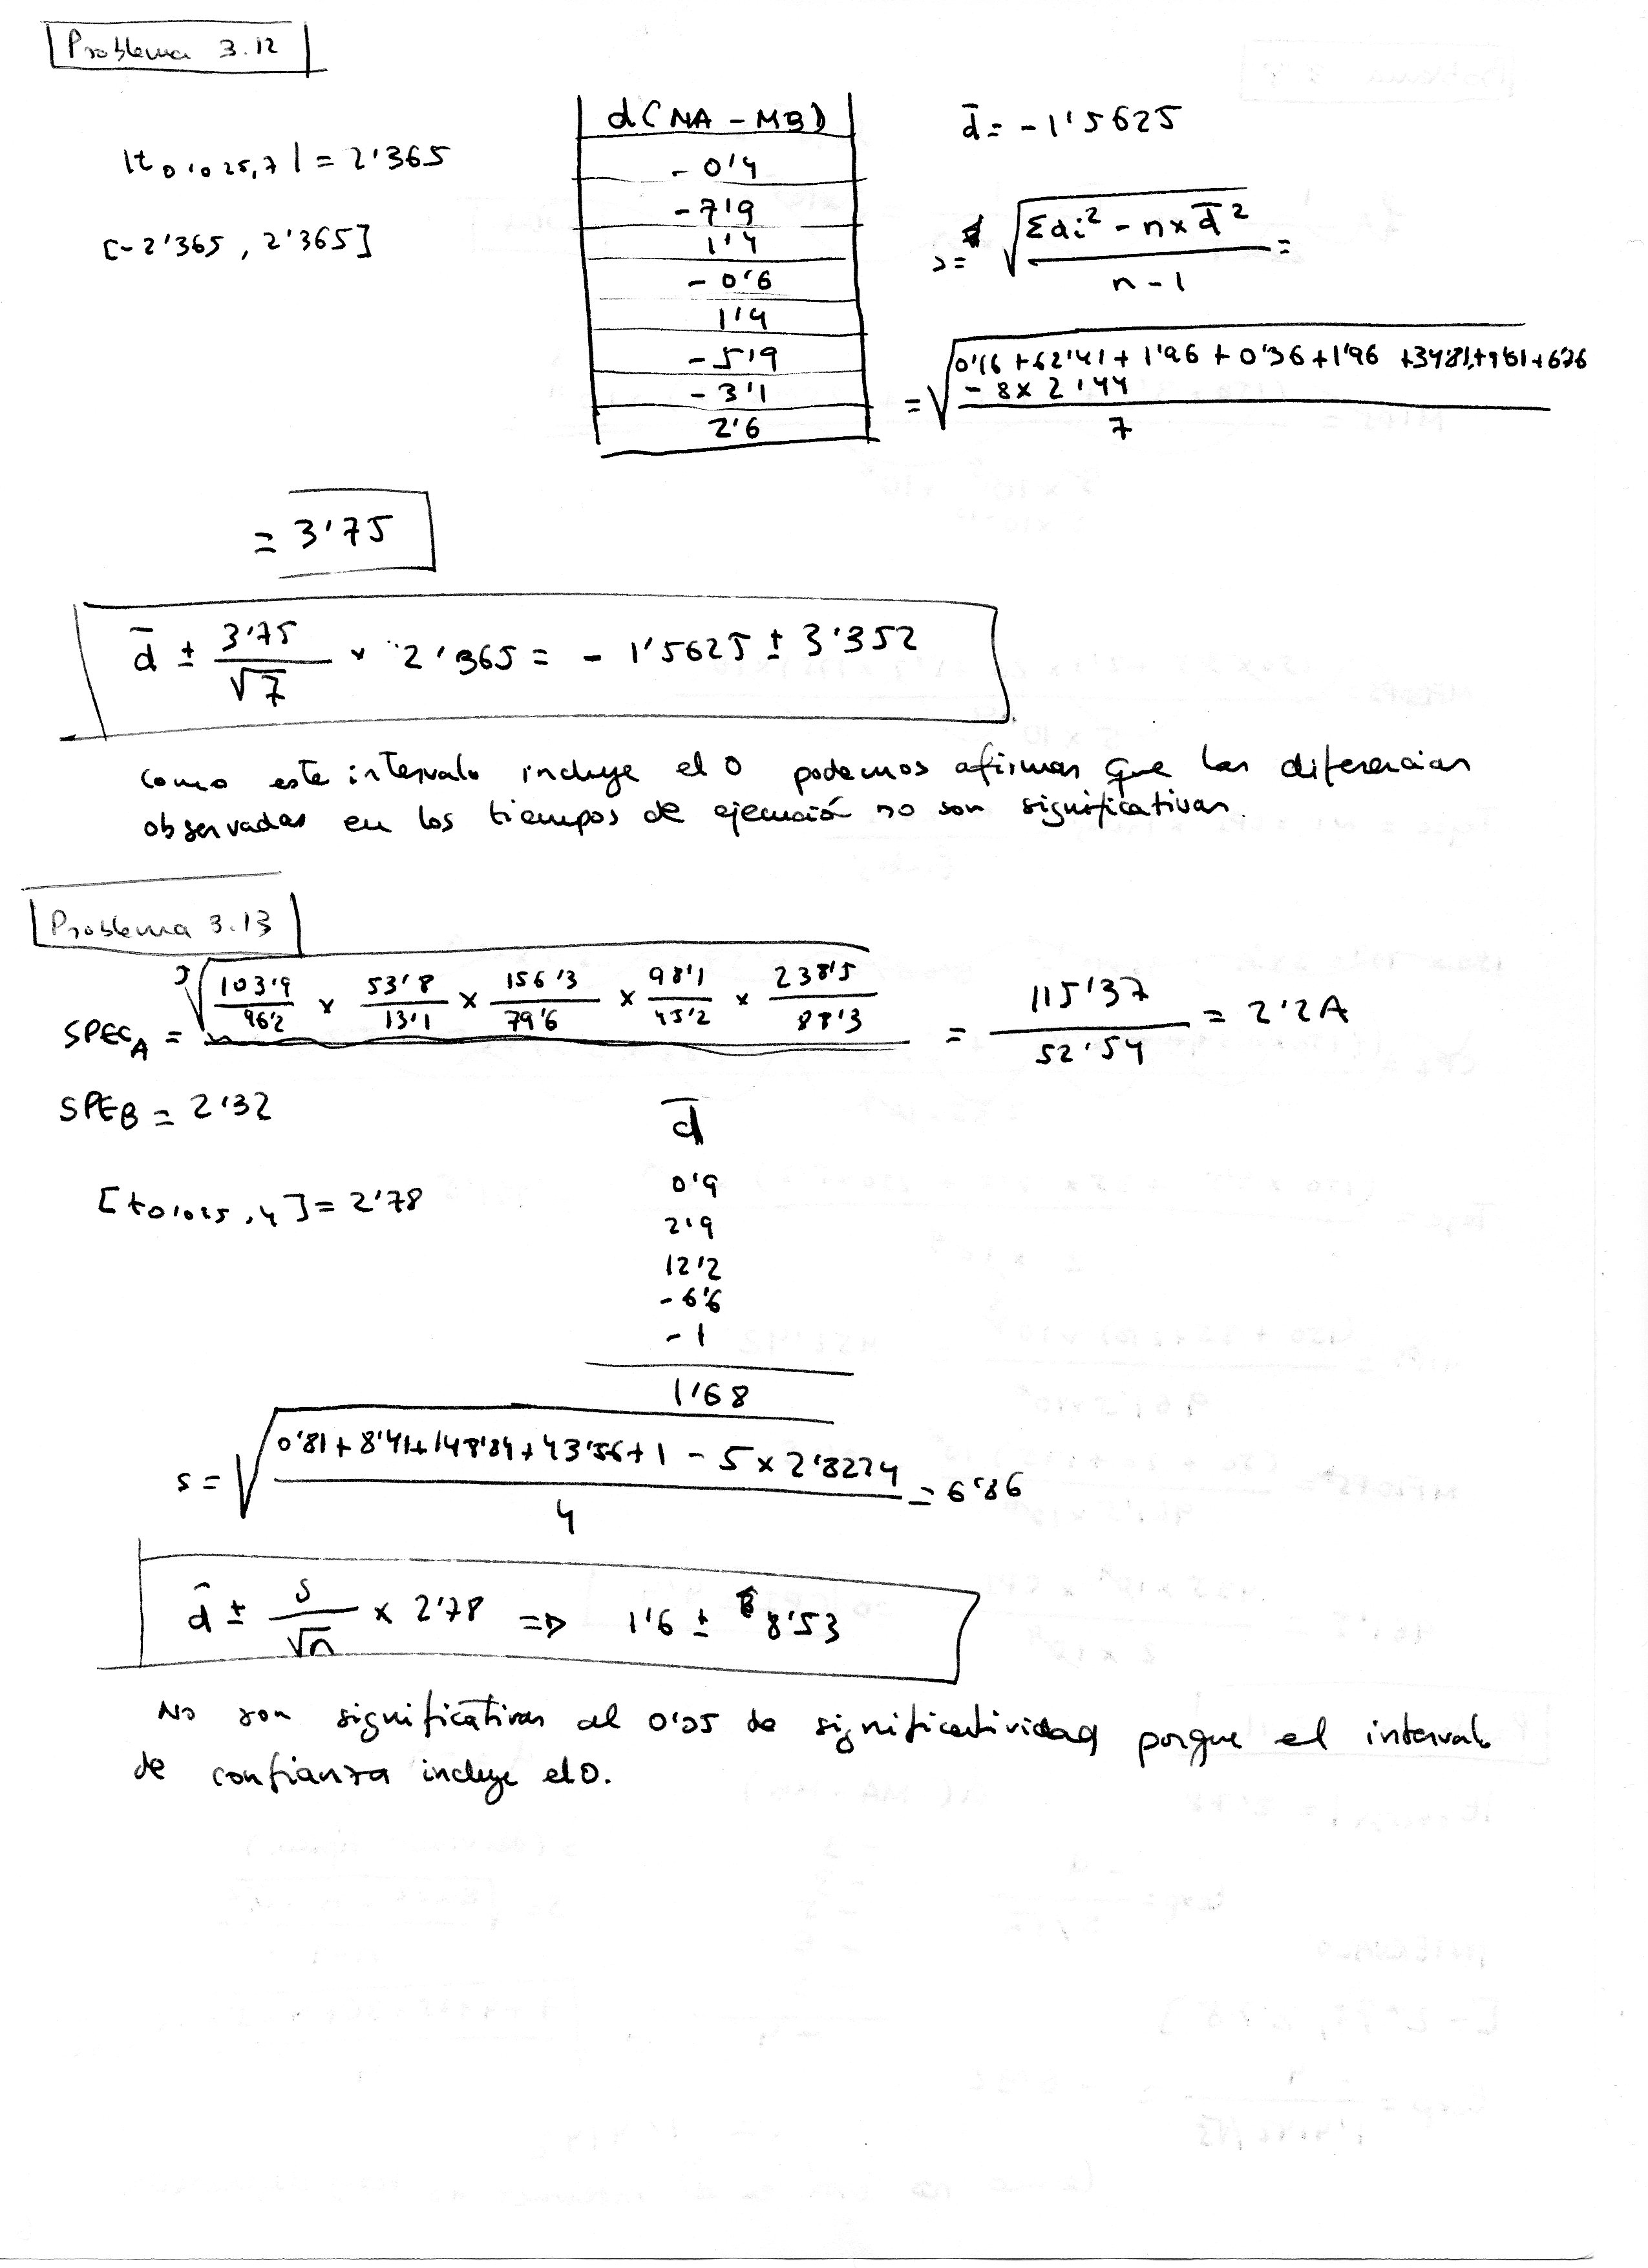 Problema 3.12
|t0'025,7| = 2'365
[-2'365, 2'365]
d(MA - MB)
-0'4
-7'9
1'4
-0'6
1'4
-5'9
-3'1
2'6
d̄ = -1'5625
s = √((Σdi² - n x d̄²)/(n-1)) =
= √((0'16 + 62'41 + 1'96 + 0'36 + 1'96 + 34'81 + 9'61 + 6'76
- 8 x 2'44)/7)
= 3'75
d̄ ± 3'75/√7 x 2'365 = -1'5625 ± 3'352
como este intervalo incluye el 0 podemos afirmar que las diferencias
observadas en los tiempos de ejecución no son significativas.
Problema 3.13
SPEC_A = ⁵√(103'9/96'2 x 53'8/13'1 x 156'3/79'6 x 98'1/45'2 x 238'5/88'3) = 115'37/52'54 = 2'2A
SPEB = 2'32
[t0'025,4] = 2'78
d̄
0'9
2'9
12'2
-6'6
-1
1'68
s = √((0'81 + 8'41 + 148'84 + 43'56 + 1 - 5 x 2'8224)/4) = 6'86
d̄ ± s/√n x 2'78 => 1'6 ± 8'53
No son significativas al 0'05 de significatividad porque el intervalo
de confianza incluye el 0.